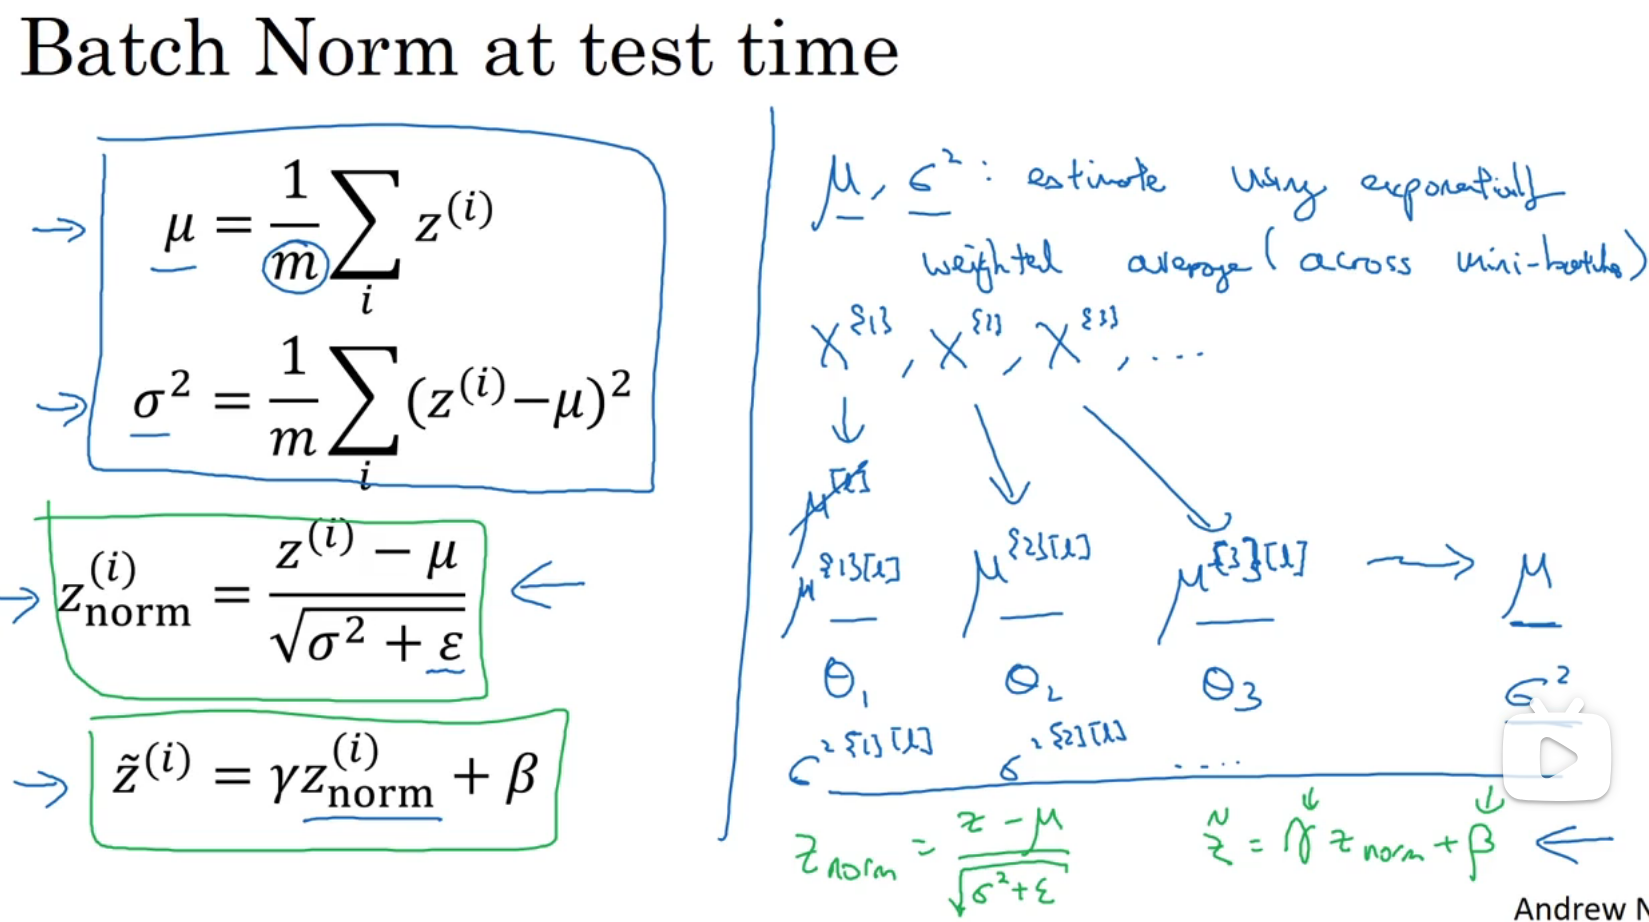 Batch Norm at test time
μ = 1/m ∑_i z^(i)
σ² = 1/m ∑_i (z^(i)−μ)²
z_norm^(i) = (z^(i) − μ) / √(σ² + ε)
z̃^(i) = γz_norm^(i) + β
μ, σ² : estimate using exponentially
weighted average (across mini-batches)
X^{1}, X^{2}, X^{3}, ...
μ^[l]
μ^{1}[l] μ^{2}[l] μ^{3}[l] → μ
θ₁ θ₂ θ₃ σ²
σ²^{1}[l] σ²^{2}[l] ....
z_norm = (z − μ) / √(σ² + ε) z̃ = γ z_norm + β
Andrew N